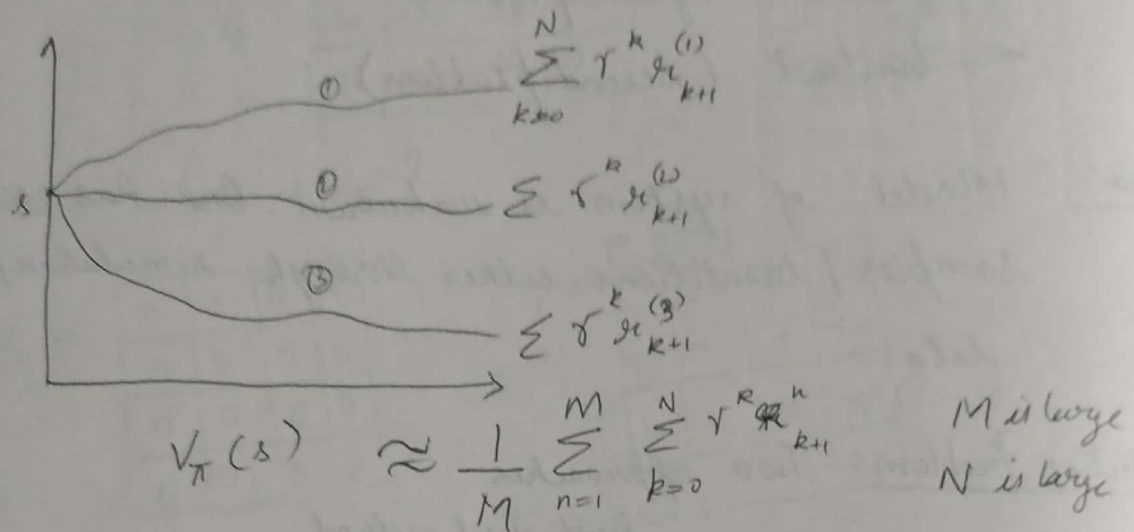 ① \sum_{k=0}^{N} γ^k r_{k+1}^{(1)}
s ① \sum γ^k r_{k+1}^{(1)}
③ \sum γ^k r_{k+1}^{(3)}
V_π(s) ≈ \frac{1}{M} \sum_{n=1}^{M} \sum_{k=0}^{N} γ^k r_{k+1}^n M is large
N is large